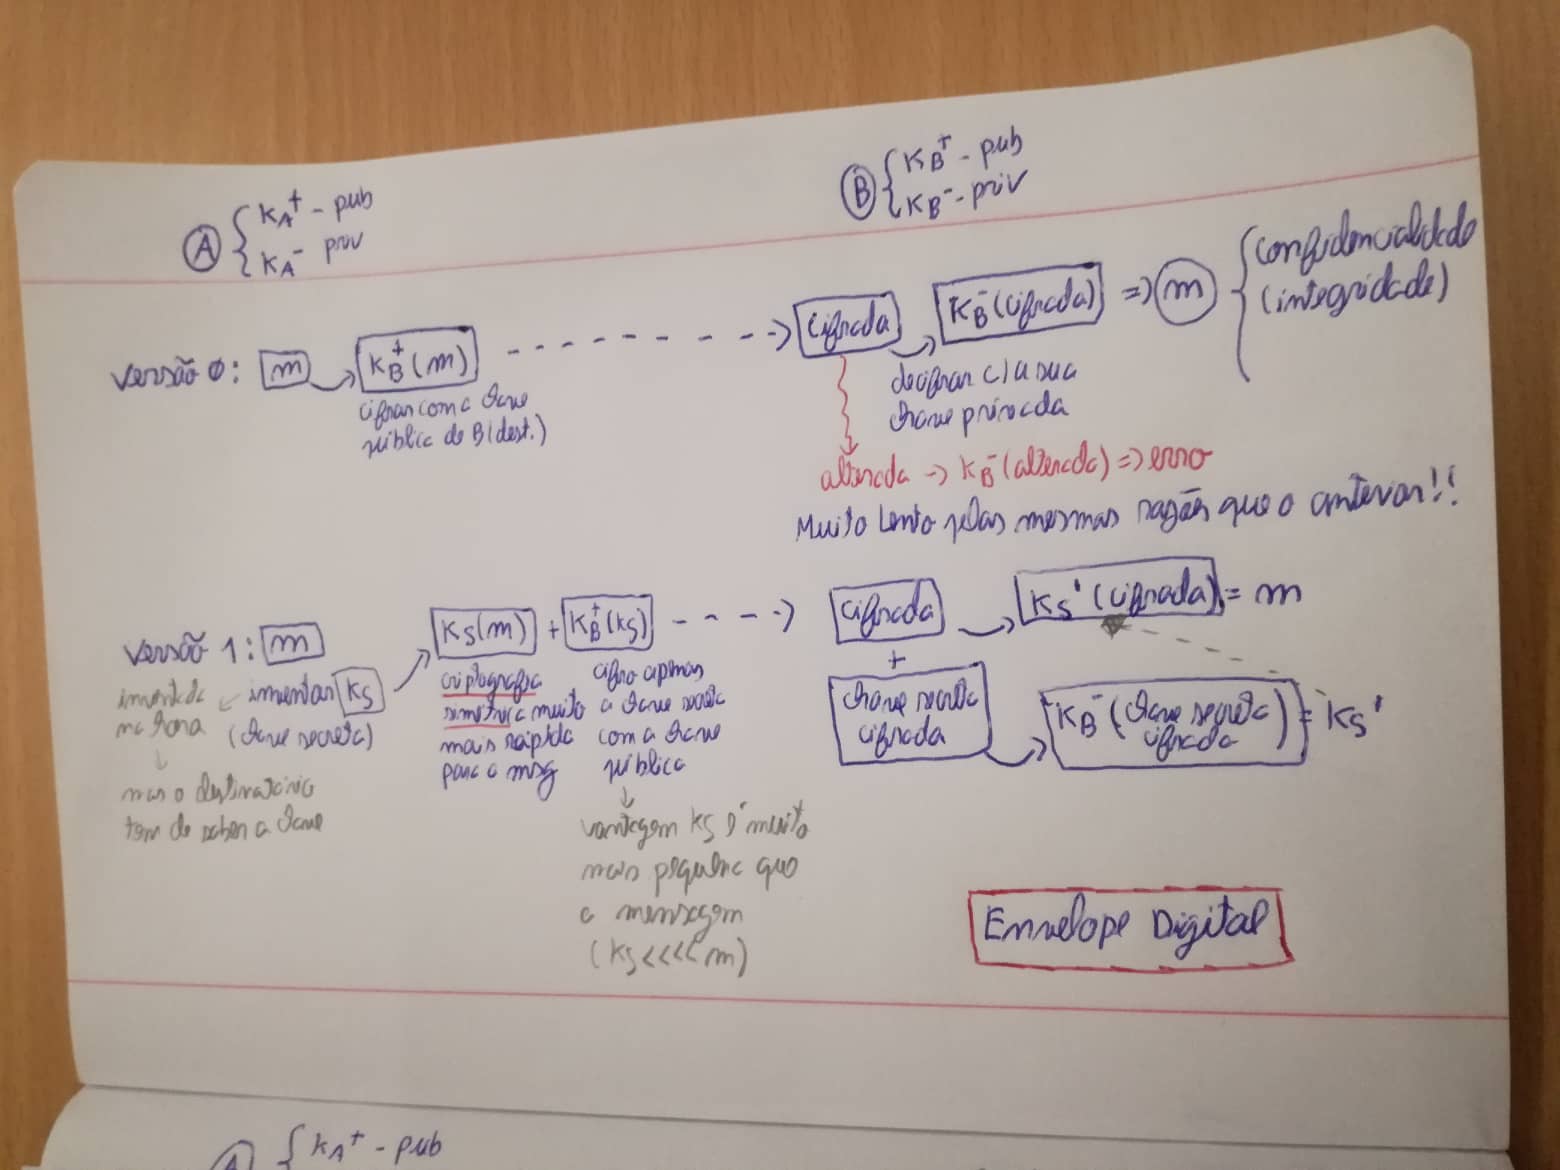 A { KA+ - pub
KA- priv
B { KB+ - pub
KB- - priv
versão 0: m → KB+(m) - - - - - - - -> Cifrada → KB-(Cifrada) => m { Confidencialidade
(integridade)
cifrar com a chave
pública de B (dest.)
decifrar c/ a sua
chave privada
alterada -> KB-(alterada) => erro
Muito lento pelas mesmas razões que o anterior!!
versão 1: m
inventar KS
(chave secreta)
inventada
na hora
mas o destinatário
tem de saber a chave
KS(m) + KB+(KS) - - - ->
criptografia
simétrica muito
mais rápida
para a msg
cifro apenas
a chave secreta
com a chave
pública
vantagem KS é muito
mais pequena que
a mensagem
(KS <<<< m)
Cifrada → KS'(Cifrada) = m
+
chave secreta
cifrada
KB-(chave secreta
cifrada) = KS'
Envelope Digital
A { KA+ - pub